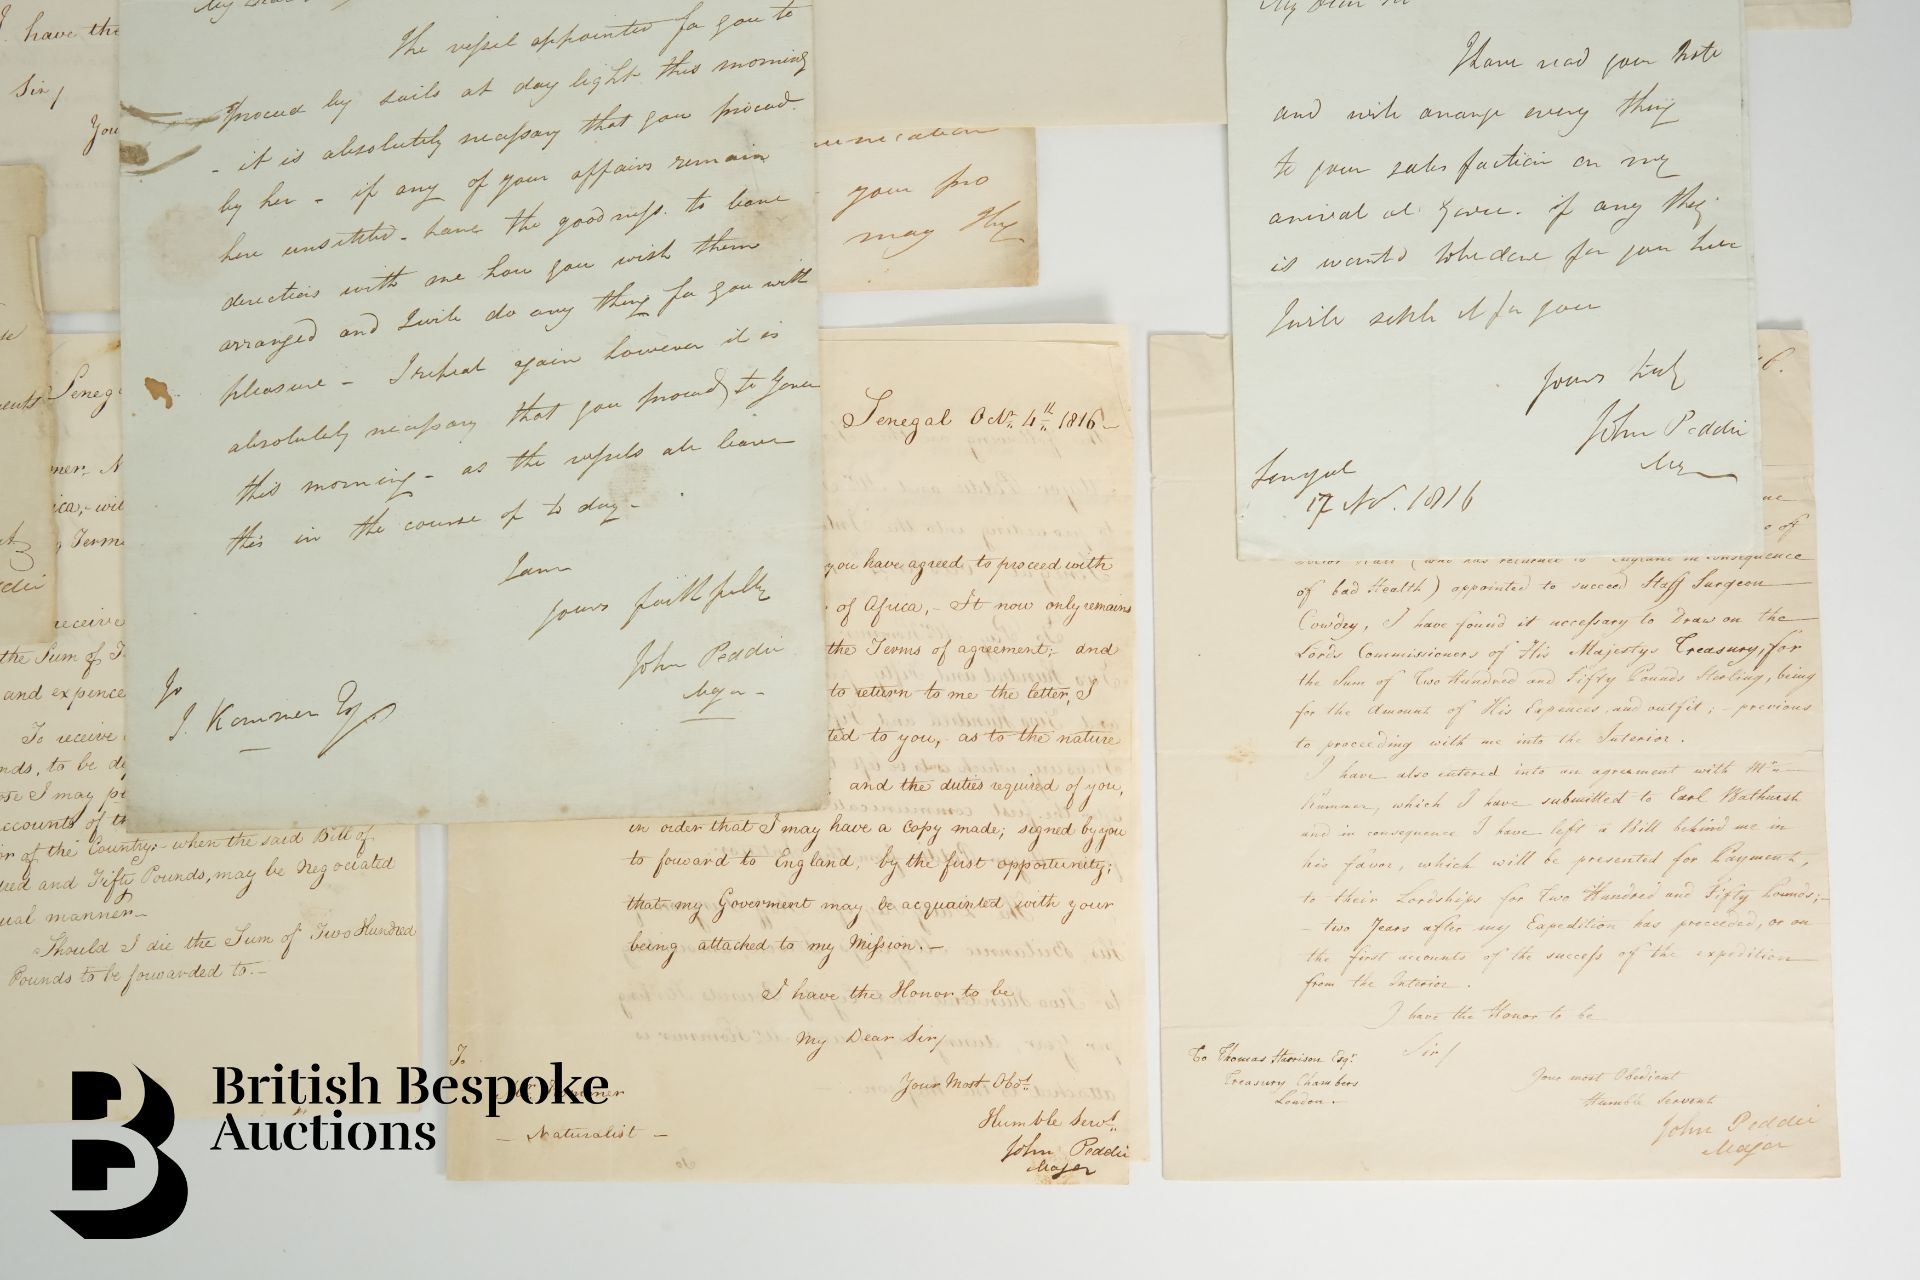 I have the
Sir,
You
My Dear
The vessel appointed for you to
proceed by sails at day light this morning
- it is absolutely necessary that you proceed
by her - if any of your affairs remain
here unsettled - have the goodness to leave
directions with me how you wish them
arranged and I will do any thing for you with
pleasure - I repeat again however it is
absolutely necessary that you proceed to Goree
this morning - as the vessels all leave
this in the course of to day -
I am
yours faithfully
John Peddie
Major -
To
J. Kummer Esq
your pro
may the
My Dear Sir
I have read your Note
and will arrange every thing
to your satisfaction on my
arrival at Goree. if any thing
is wanted to be done for you here
I will settle it for you
yours truly
John Peddie
Major
Senegal
17 Nov. 1816
Seneg
receive
the Sum of
and expence
To receive
nds, to be de
ose I may
accounts of th
or of the Country; - when the said Bill of
dred and Fifty Pounds, may be Negociated
ual manner -
Should I die the Sum of Two Hundred
Pounds to be forwarded to. -
Senegal Oct. 4th 1816
you have agreed to proceed with
of Africa, - It now only remains
the Terms of agreement; and
to return to me the letter, I
ted to you, as to the nature
and the duties required of you,
in order that I may have a Copy made; signed by you
to forward to England, by the first opportunity;
that my Goverment may be acquainted with your
being attached to my Mission. -
I have the Honor to be
My Dear Sir,
Your Most Obdt.
Humble Servt.
John Peddie
Major
To
Mr. Kummer
- Naturalist -
6.
of bad Health) appointed to succeed Staff Surgeon
Cowdry, I have found it necessary to Draw on the
Lords Commissioners of His Majestys Treasury, for
the Sum of Two Hundred and Fifty Pounds Sterling, being
for the Amount of His Expences, and outfit; - previous
to proceeding with me into the Interior.
I have also entered into an agreement with Mr.
Kummer, which I have submitted to Earl Bathurst
and in consequence I have left a Bill behind me in
his favor, which will be presented for Payment,
to their Lordships for Two Hundred and Fifty Pounds; -
- two Years after my Expedition has preceeded, or on
the first accounts of the success of the expedition
from the Interior.
I have the Honor to be
Sir,
Your most Obedient
Humble Servent
John Peddie
Major
To Thomas Harrison Esqr.
Treasury Chambers
London. -
British Bespoke
Auctions